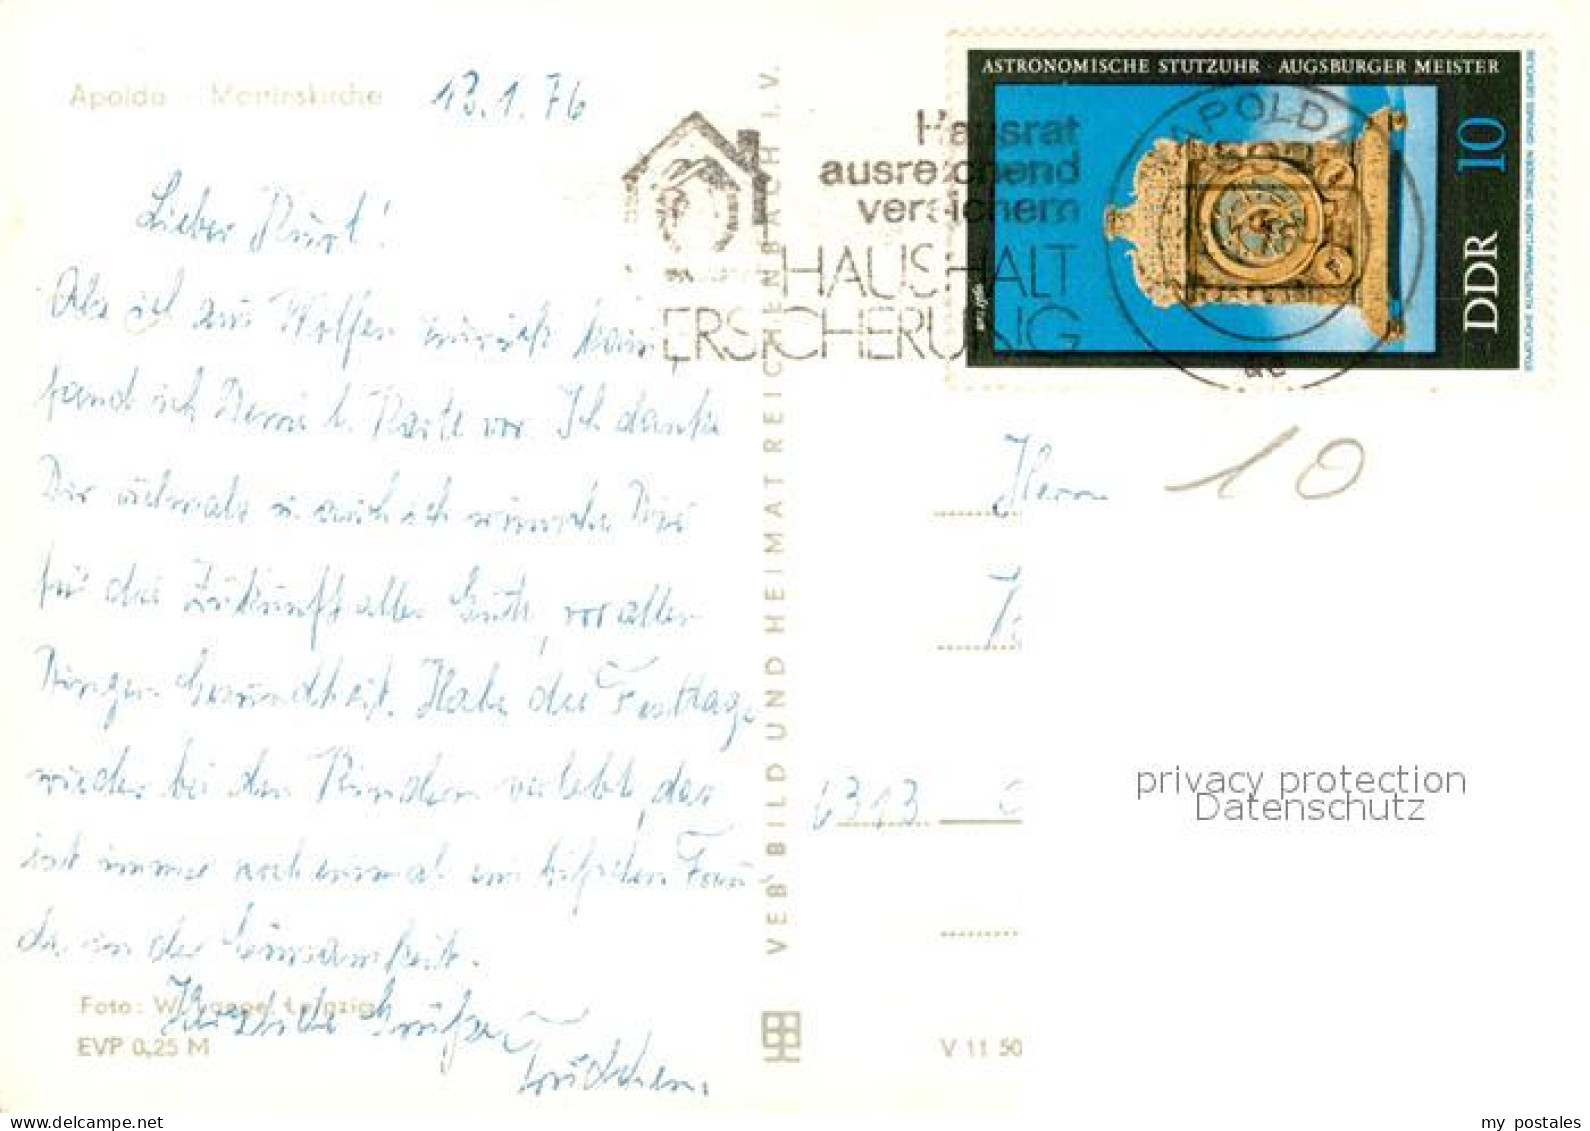 Apolda Martinskirche
13.1.76
Lieber Kurt!
Als ich aus Wolfen zurück kam,
fand ich Deine l. Karte vor. Ich danke
Dir vielmals u. auch ich wünsche Dir
für die Zukunft alles Gute, vor allen
Dingen Gesundheit. Habe die Festtage
wieder bei den Kindern verlebt, das
ist immer noch einmal
in der Einsamkeit.
Herzliche Grüße
Foto: Leipzig
EVP 0,25 M
VEB BILD UND HEIMAT REICHENBACH I. V.
Hausrat
ausreichend
versichern
HAUSHALT
ERSICHERUNG
APOLDA
ASTRONOMISCHE STUTZUHR · AUGSBURGER MEISTER
10
DDR
STAATLICHE KUNSTSAMMLUNGEN DRESDEN · GRÜNES GEWÖLBE
Herrn
10
6313
V 11 50
privacy protection
Datenschutz
my postales